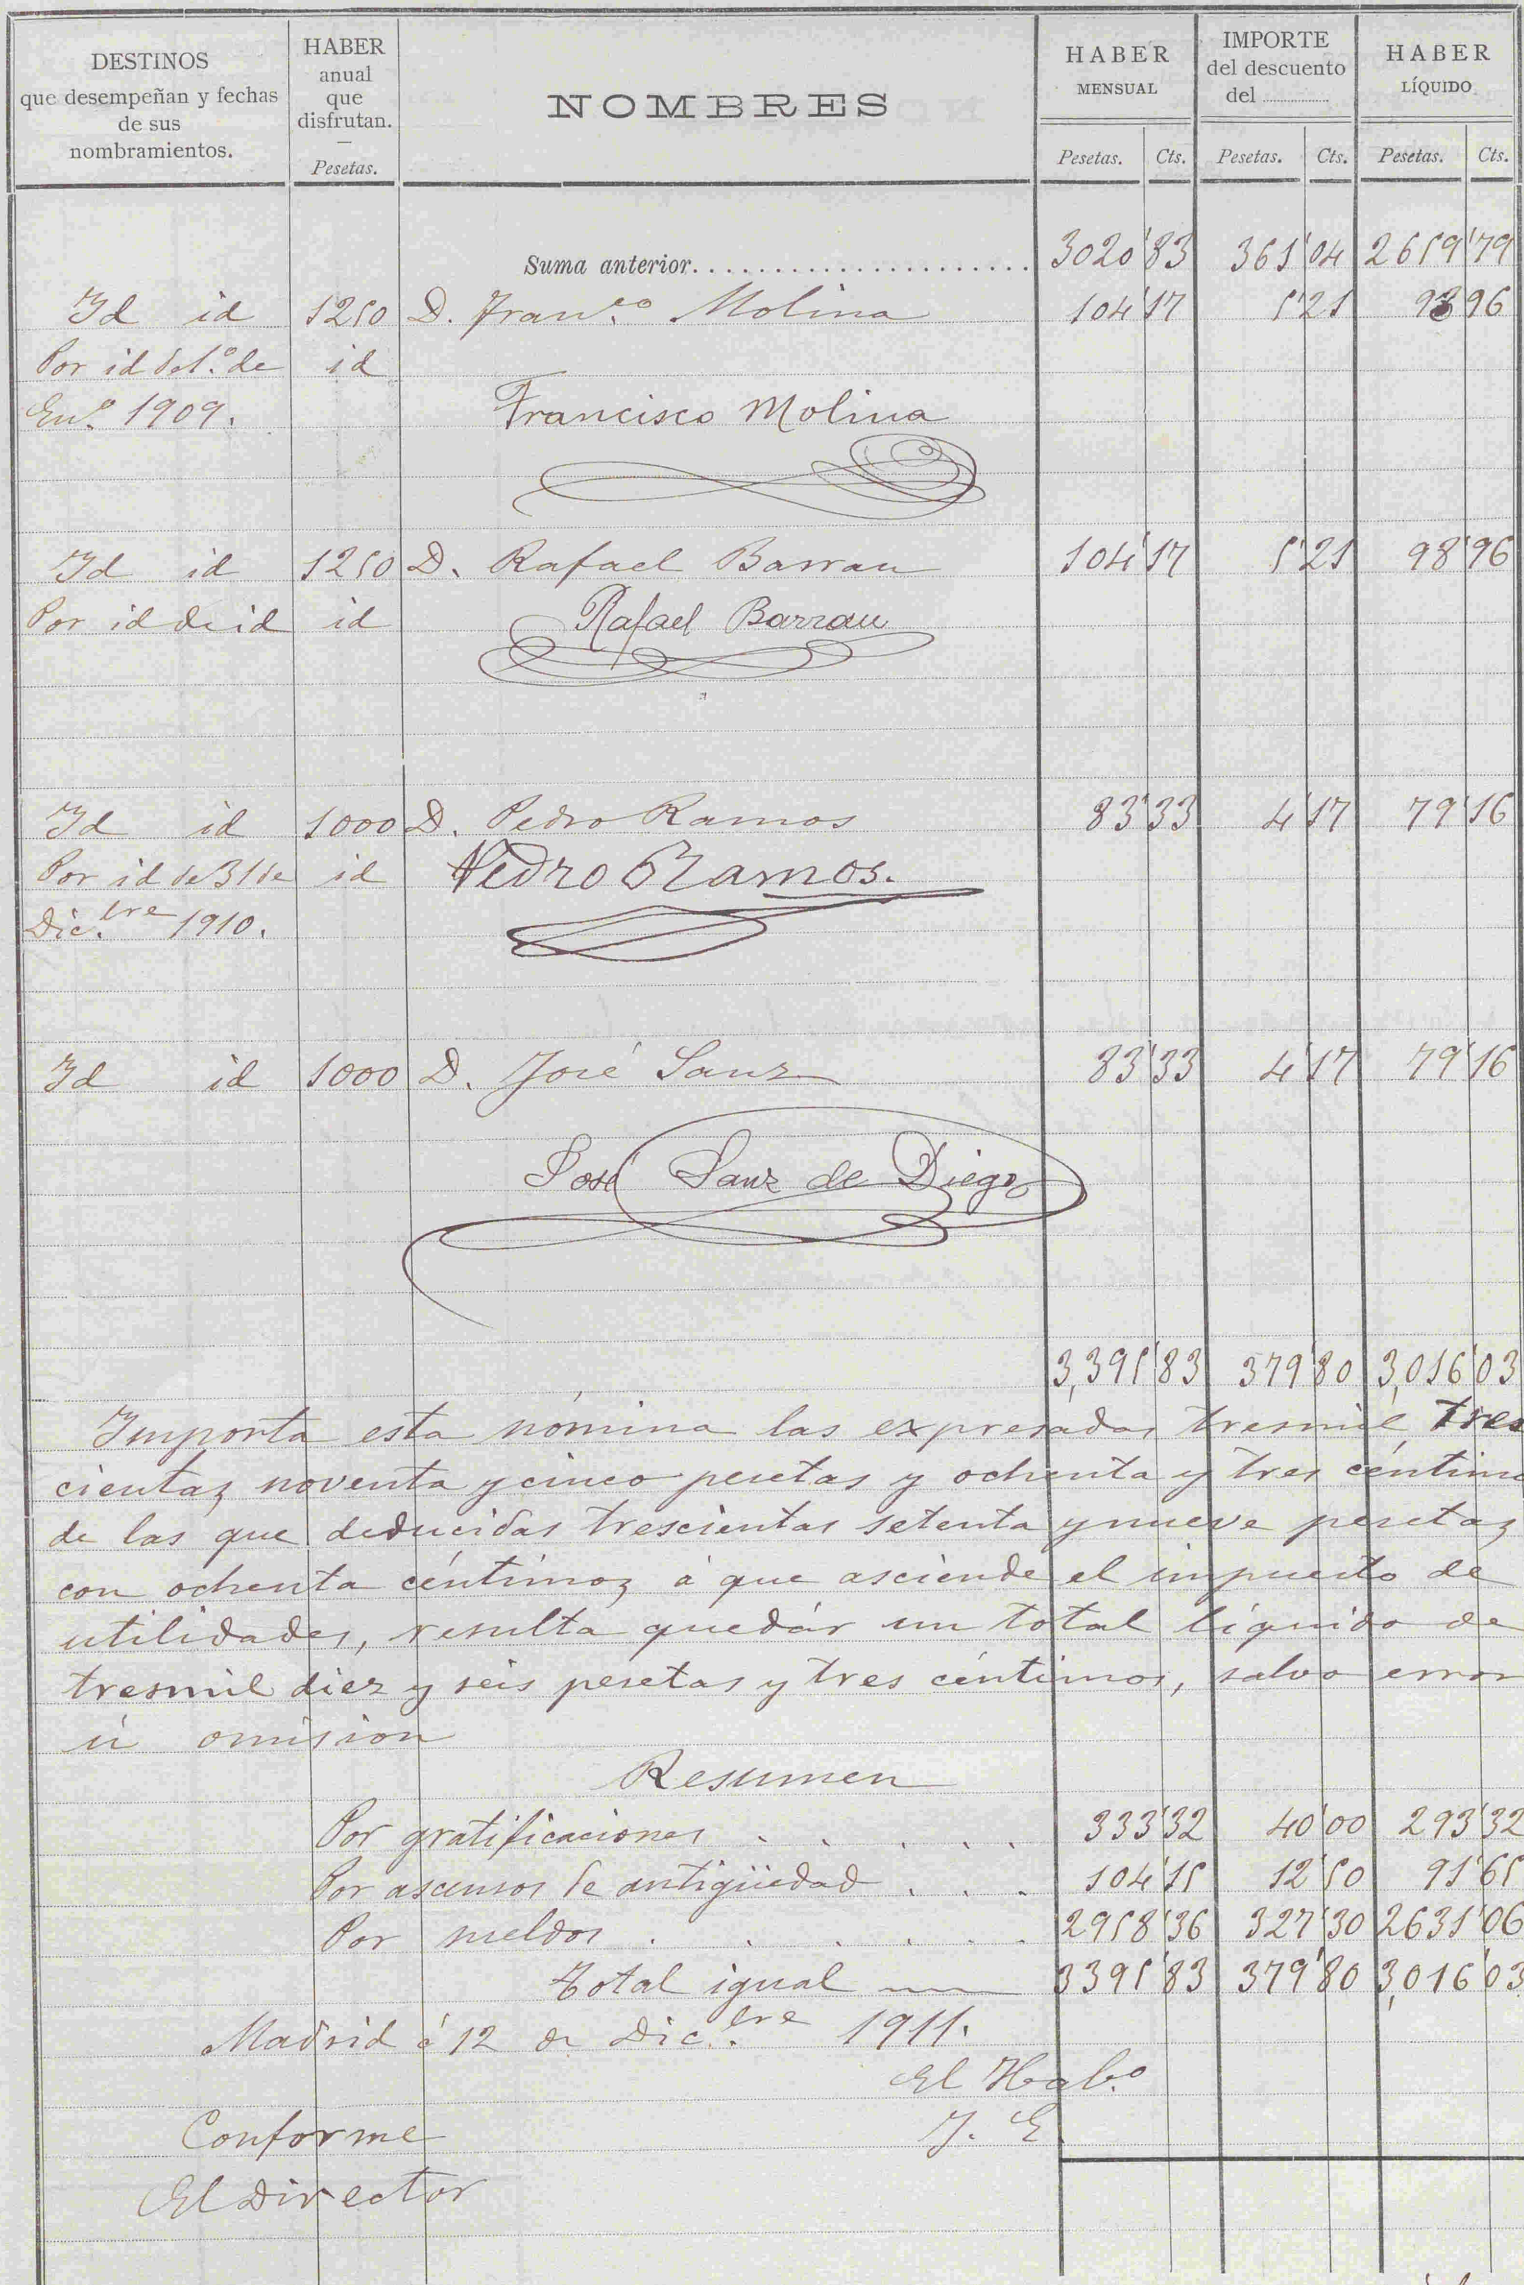 DESTINOS
que desempeñan y fechas
de sus
nombramientos.
HABER
anual
que
disfrutan.
Pesetas.
NOMBRES
HABER
MENSUAL
Pesetas. Cts.
IMPORTE
del descuento
del ..........
Pesetas. Cts.
HABER
LÍQUIDO
Pesetas. Cts.
Suma anterior..................... 3020'83 361'04 2659'79
Id id 1250 D. Fran.co Molina 104'17 5'21 98'96
Por id de 1.º de id
En.º 1909. Francisco Molina
Id id 1250 D. Rafael Barrau 104'17 5'21 98'96
Por id de id id Rafael Barrau
Id id 1000 D. Pedro Ramos 83'33 4'17 79'16
Por id de 31 de id Pedro Ramos.
Dic.bre 1910.
Id id 1000 D. José Sanz 83'33 4'17 79'16
José Sanz de Diego
3,395'83 379'80 3,016'03
Importa esta nómina las expresadas tresmil tres
cientas noventa y cinco pesetas y ochenta y tres céntimo
de las que deducidas trescientas setenta y nueve pesetas
con ochenta céntimos á que asciende el impuesto de
utilidades, resulta quedár un total líquido de
tresmil diez y seis pesetas y tres céntimos, salvo error
ú omision
Resumen
Por gratificaciones . . . . . 333'32 40'00 293'32
Por ascensos de antigüedad . . . 104'15 12'50 91'65
Por sueldos . . . . . . 2958'36 327'30 2631'06
Total igual 3395'83 379'80 3,016'03
Madrid á 12 de Dic.bre 1911.
El Hab.º
J. E
Conforme
El Director